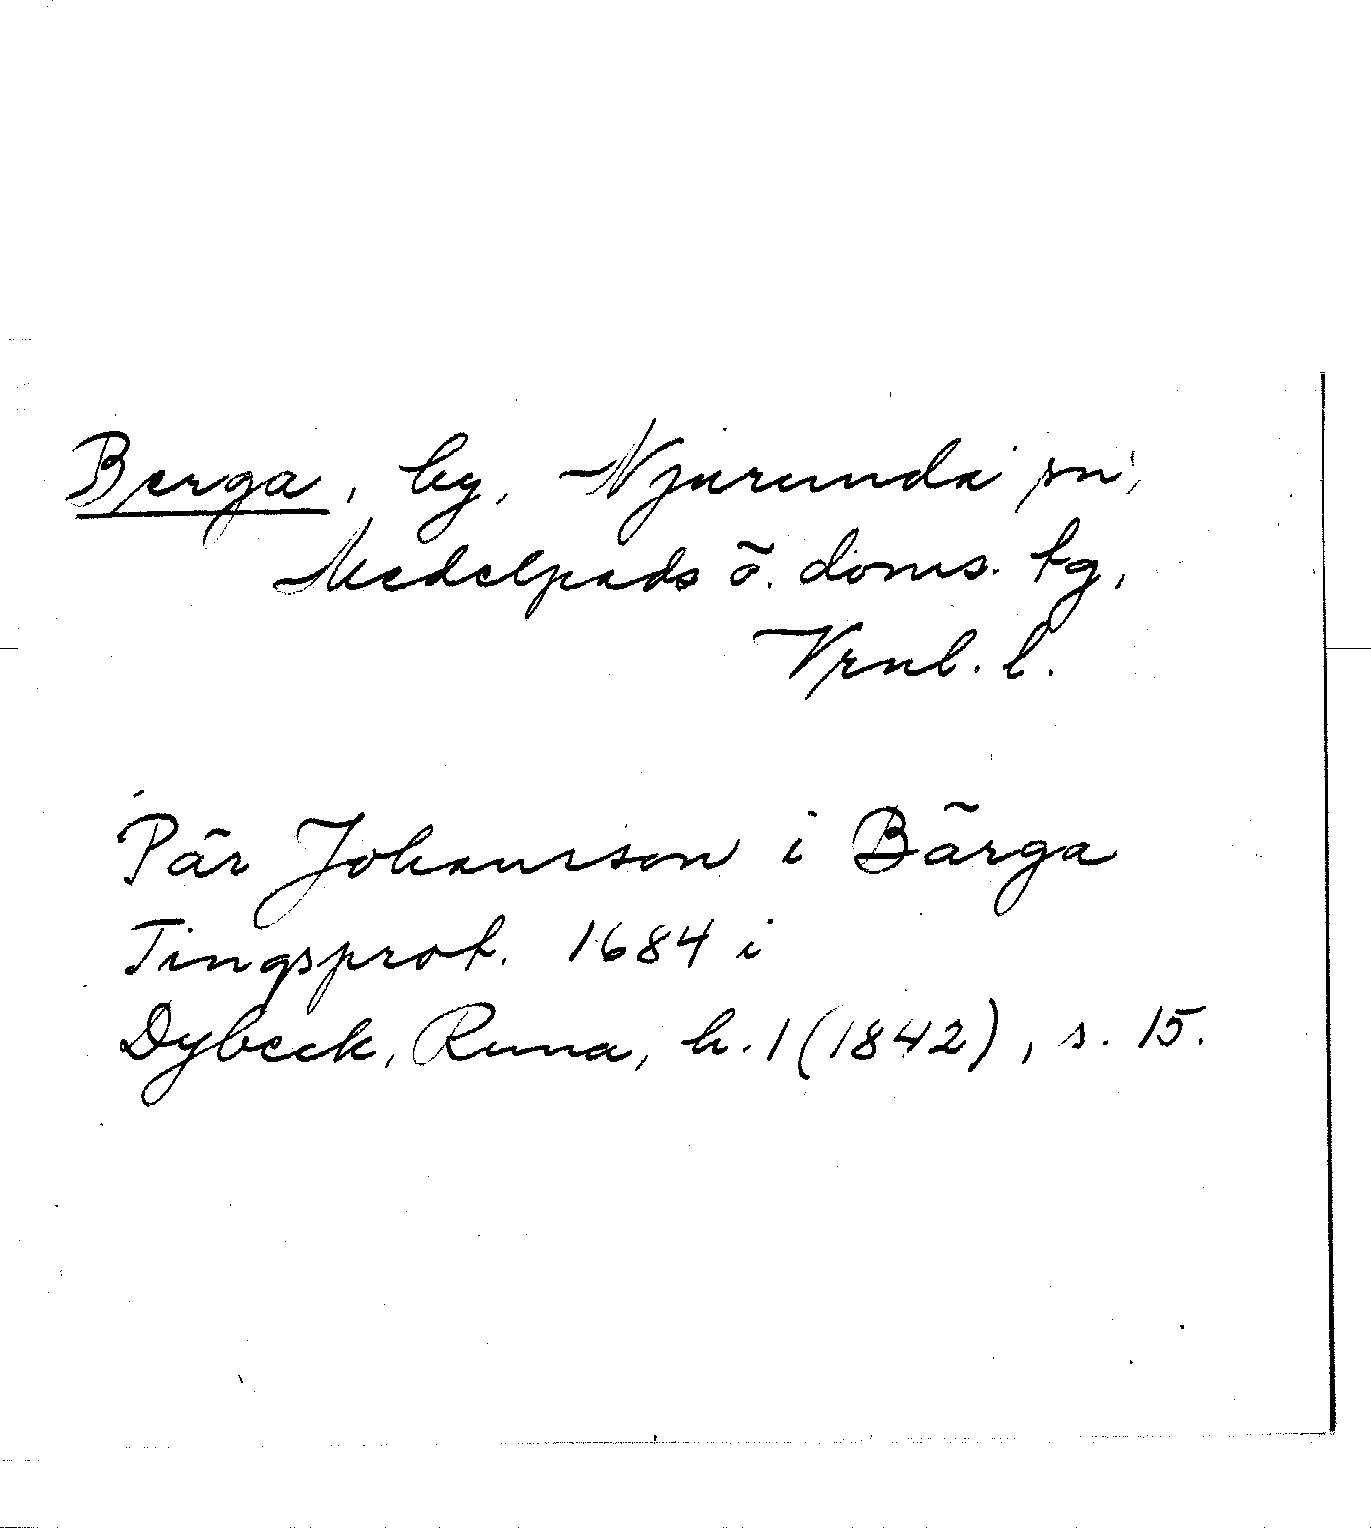 Berga, by, Njurunda sn,
Medelpads ö. doms. tg,
Vrnl. l.
Pär Johansson i Bärga
Tingsprot. 1684 i
Dybeck, Runa, h. 1 (1842), s. 15.